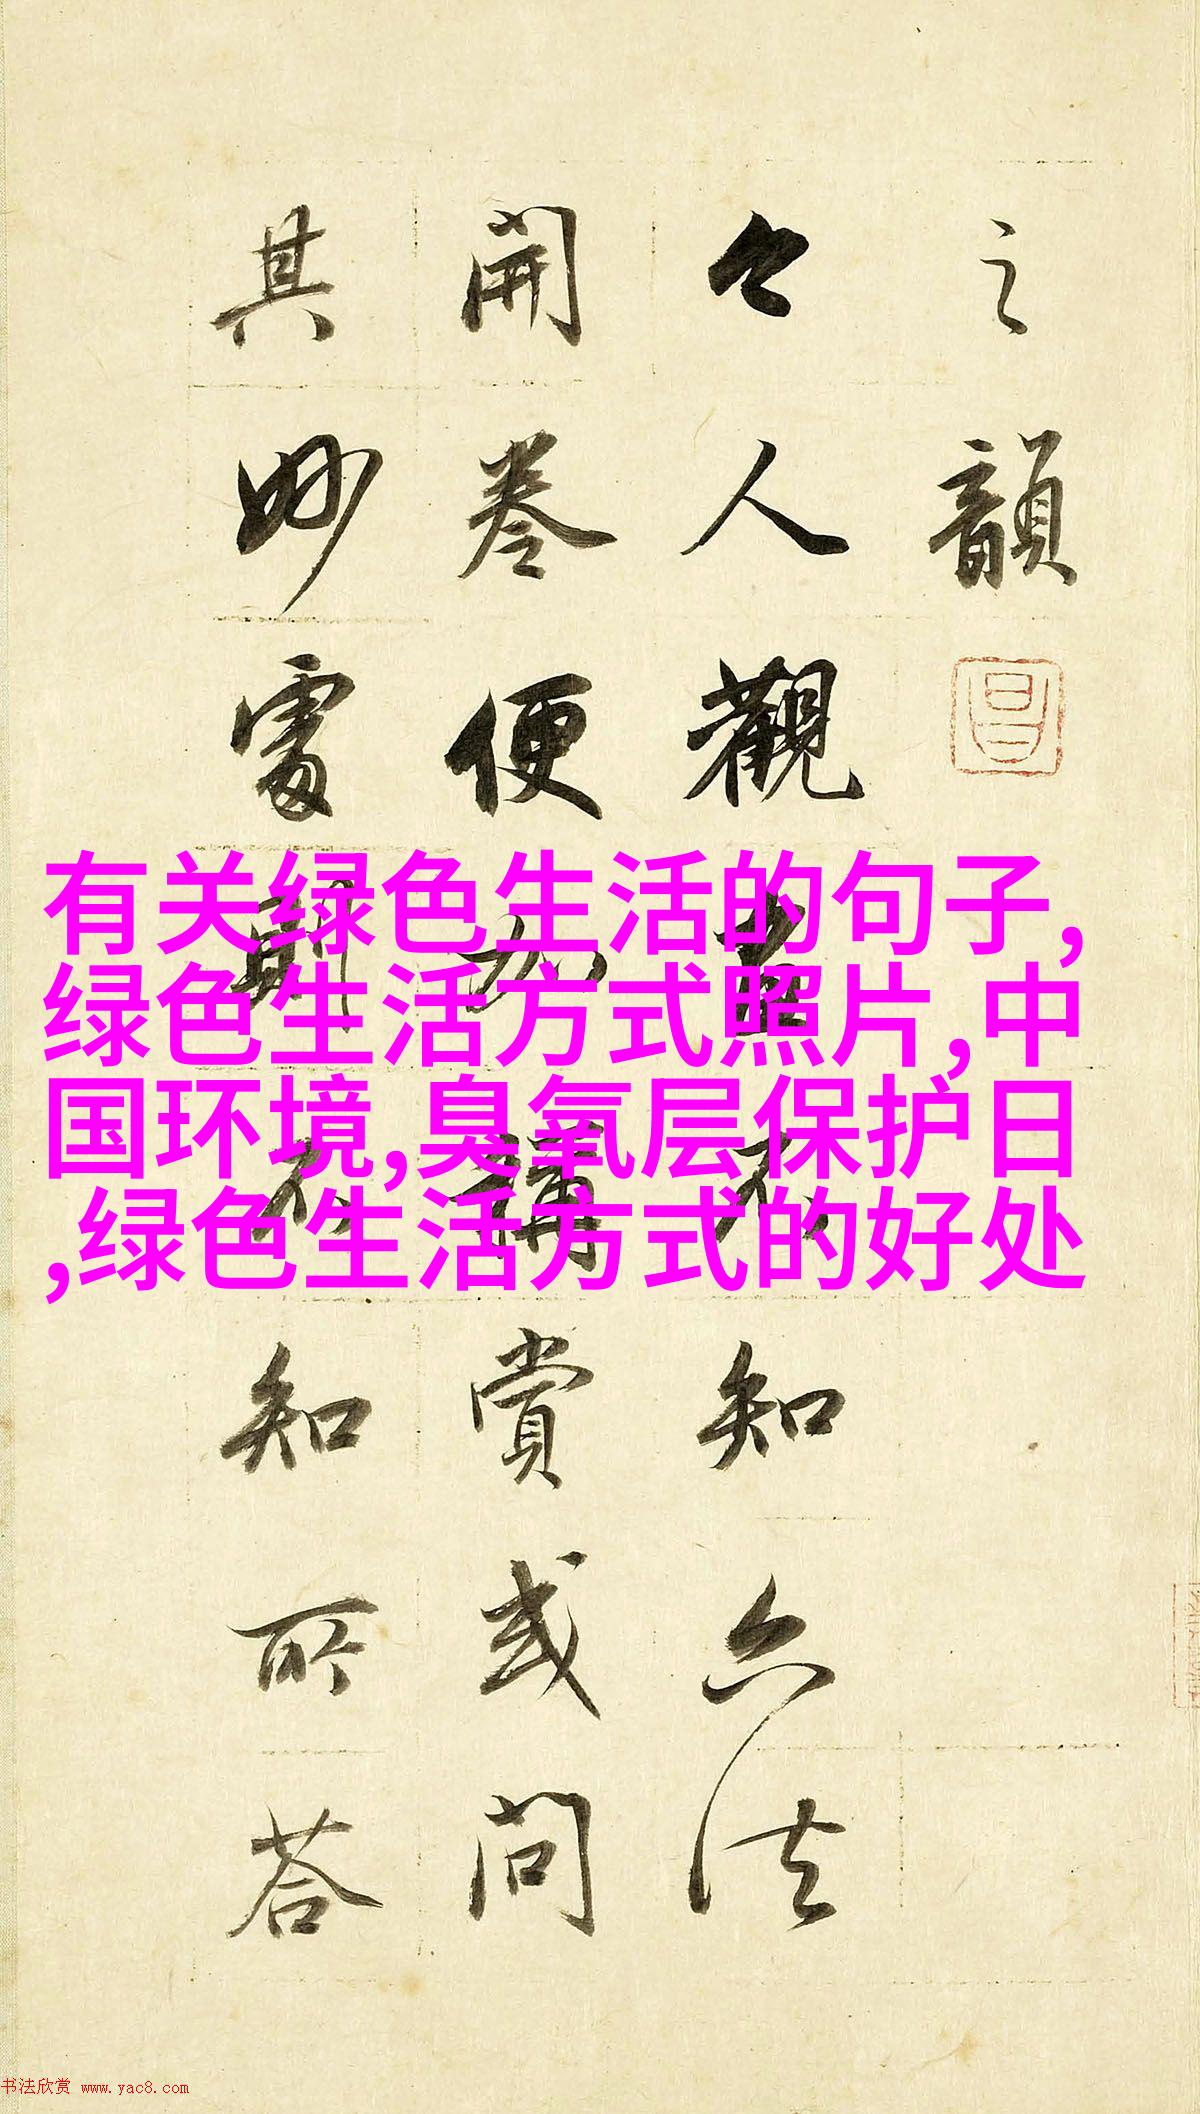 之韻
今人觀畫不知六法
開卷便加稱賞或問
其妙處則不知所答
有关绿色生活的句子,
绿色生活方式照片,中
国环境,臭氧层保护日
,绿色生活方式的好处
书法欣赏 www.yac8.com